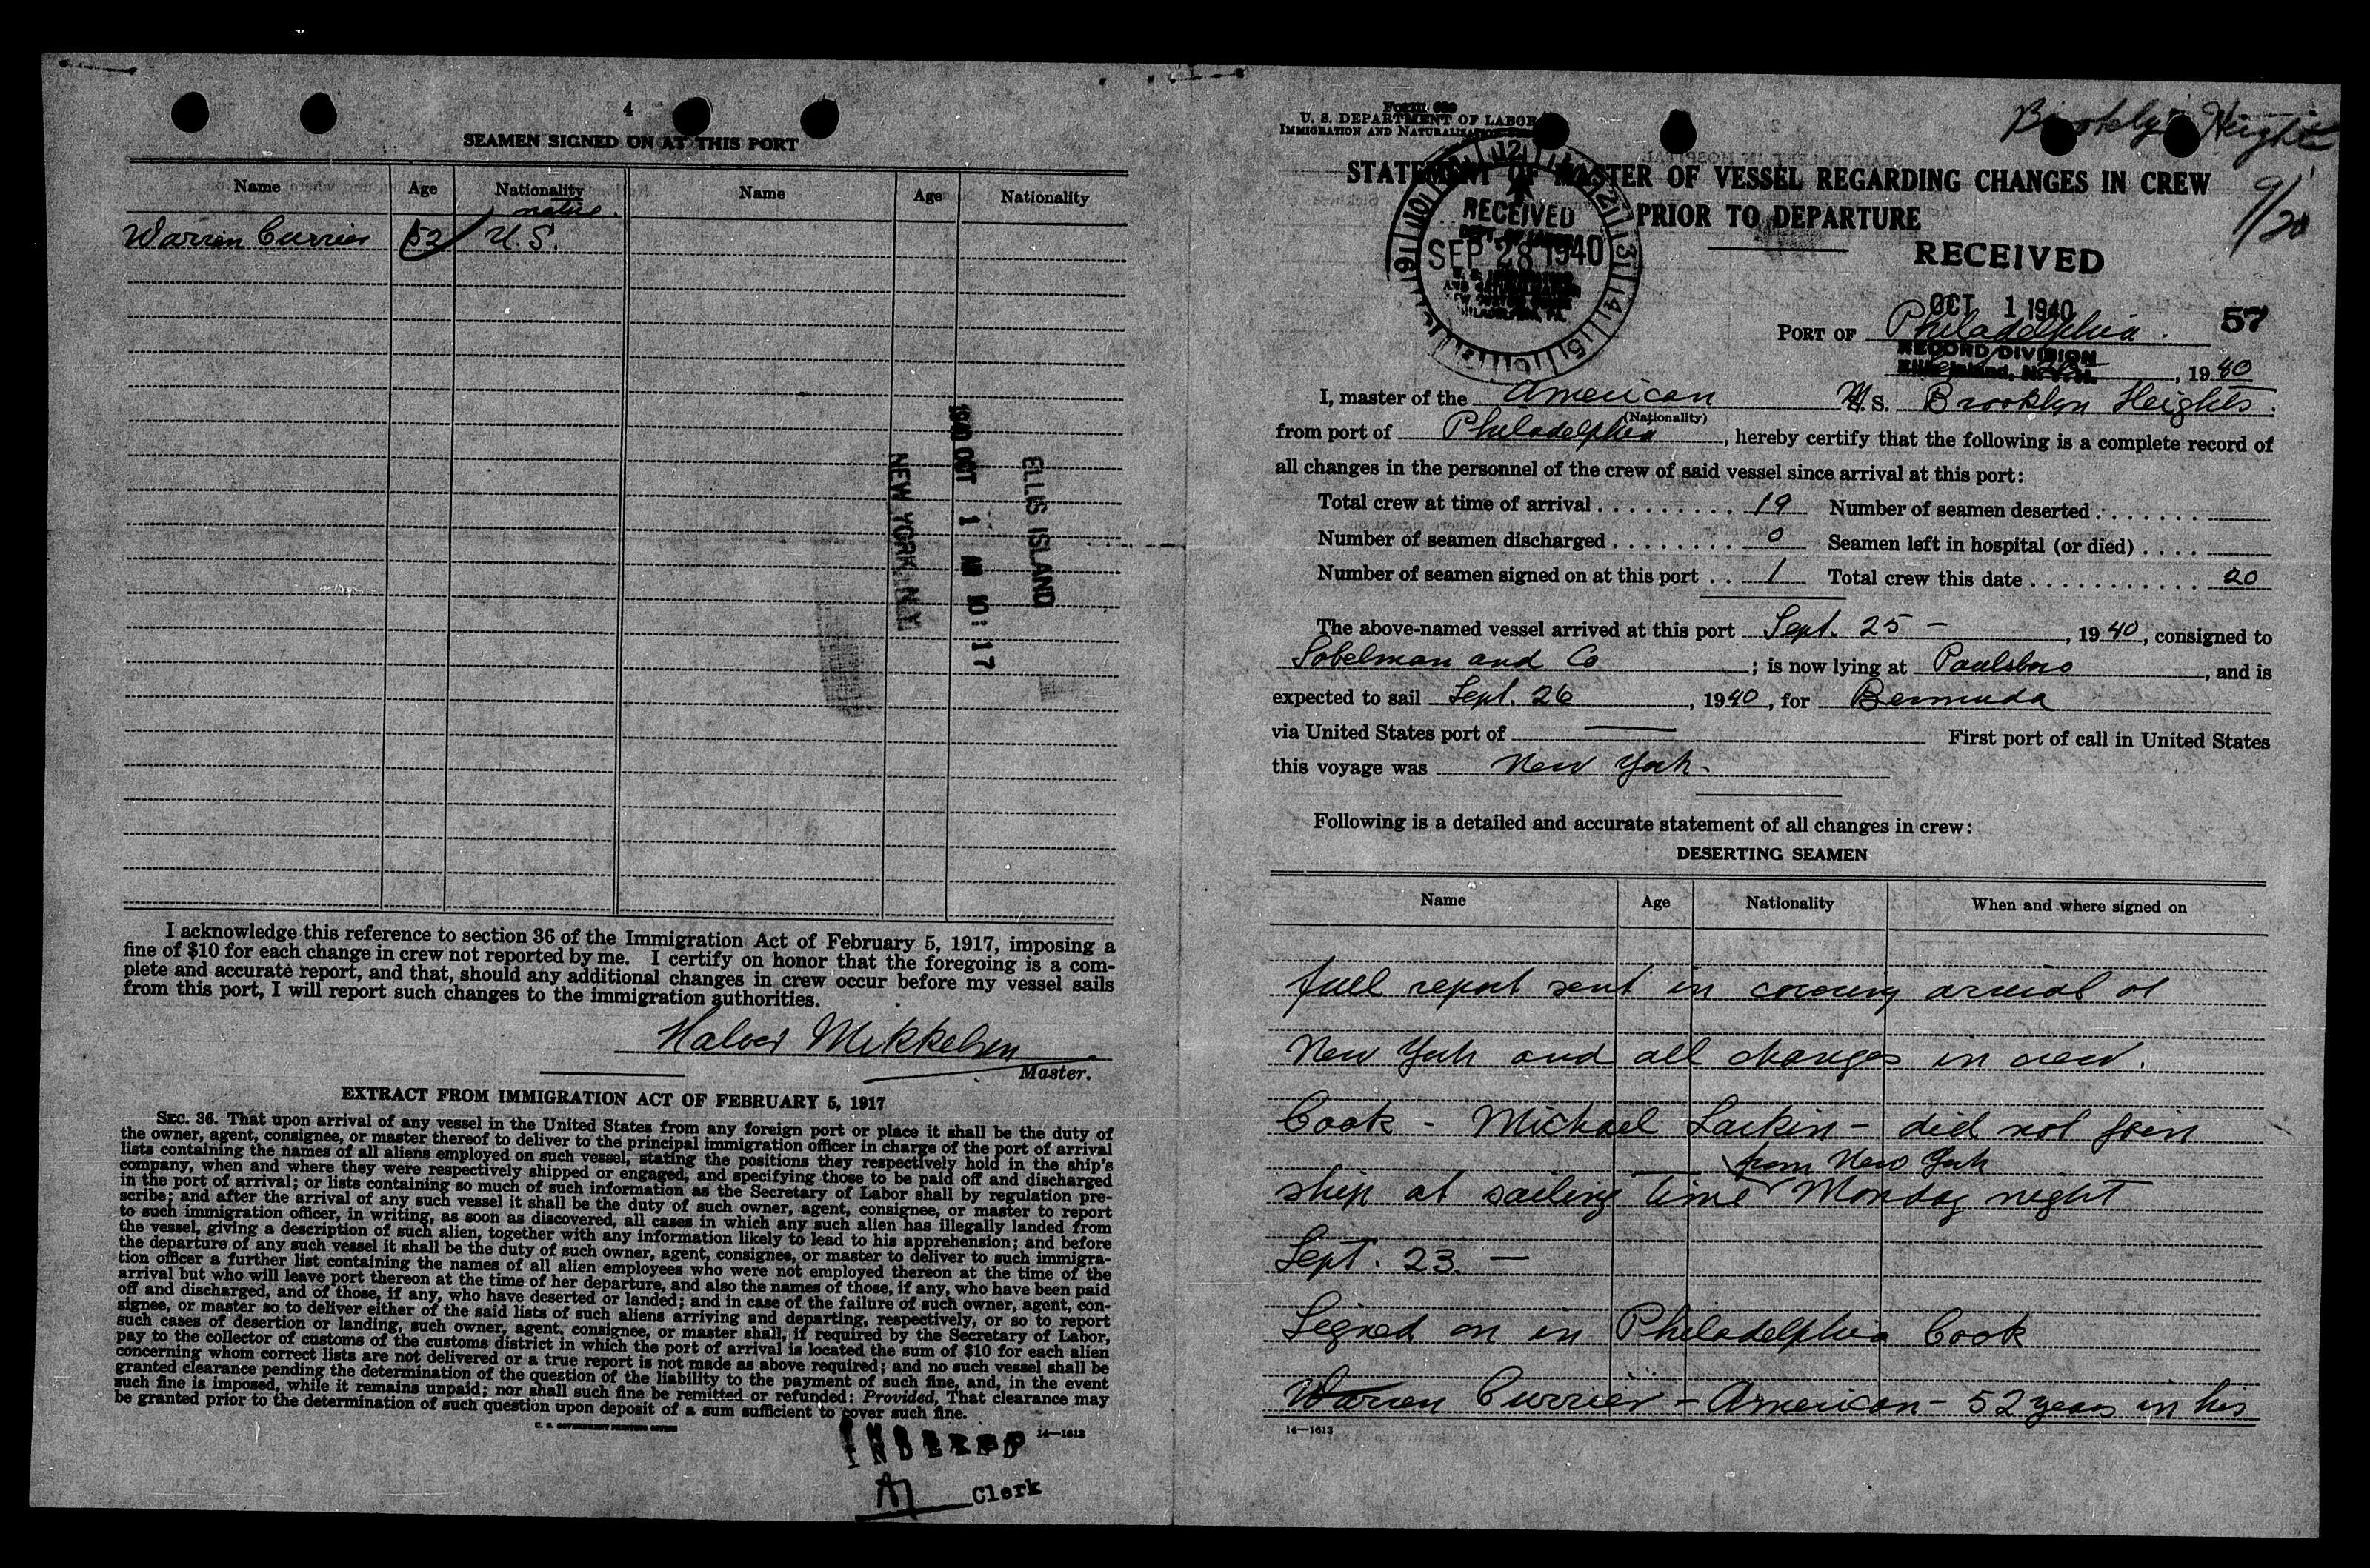 4
SEAMEN SIGNED ON AT THIS PORT
Name Age Nationality Name Age Nationality
native
Warren Currier 52 U.S.
ELLIS ISLAND
1940 OCT 1 AM 10:17
NEW YORK, N.Y.
I acknowledge this reference to section 36 of the Immigration Act of February 5, 1917, imposing a
fine of $10 for each change in crew not reported by me. I certify on honor that the foregoing is a com-
plete and accurate report, and that, should any additional changes in crew occur before my vessel sails
from this port, I will report such changes to the immigration authorities.
Halvor Mikkelsen
Master.
EXTRACT FROM IMMIGRATION ACT OF FEBRUARY 5, 1917
SEC. 36. That upon arrival of any vessel in the United States from any foreign port or place it shall be the duty of
the owner, agent, consignee, or master thereof to deliver to the principal immigration officer in charge of the port of arrival
lists containing the names of all aliens employed on such vessel, stating the positions they respectively hold in the ship's
company, when and where they were respectively shipped or engaged, and specifying those to be paid off and discharged
in the port of arrival; or lists containing so much of such information as the Secretary of Labor shall by regulation pre-
scribe; and after the arrival of any such vessel it shall be the duty of such owner, agent, consignee, or master to report
to such immigration officer, in writing, as soon as discovered, all cases in which any such alien has illegally landed from
the vessel, giving a description of such alien, together with any information likely to lead to his apprehension; and before
the departure of any such vessel it shall be the duty of such owner, agent, consignee, or master to deliver to such immigra-
tion officer a further list containing the names of all alien employees who were not employed thereon at the time of the
arrival but who will leave port thereon at the time of her departure, and also the names of those, if any, who have been paid
off and discharged, and of those, if any, who have deserted or landed; and in case of the failure of such owner, agent, con-
signee, or master so to deliver either of the said lists of such aliens arriving and departing, respectively, or so to report
such cases of desertion or landing, such owner, agent, consignee, or master shall, if required by the Secretary of Labor,
pay to the collector of customs of the customs district in which the port of arrival is located the sum of $10 for each alien
concerning whom correct lists are not delivered or a true report is not made as above required; and no such vessel shall be
granted clearance pending the determination of the question of the liability to the payment of such fine, and, in the event
such fine is imposed, while it remains unpaid; nor shall such fine be remitted or refunded: Provided, That clearance may
be granted prior to the determination of such question upon deposit of a sum sufficient to cover such fine.
U. S. GOVERNMENT PRINTING OFFICE 14—1613
INDEXED
Clerk
Form 689
U. S. DEPARTMENT OF LABOR
IMMIGRATION AND NATURALIZATION
Brooklyn Heights
9/20
STATEMENT OF MASTER OF VESSEL REGARDING CHANGES IN CREW
PRIOR TO DEPARTURE
RECEIVED
SEP 28 1940
PHILADELPHIA, PA.
RECEIVED
OCT 1 1940
RECORD DIVISION
Ellis Island, N.Y.H.
57
PORT OF Philadelphia.
, 1940
I, master of the American M.S. Brooklyn Heights.
(Nationality)
from port of Philadelphia, hereby certify that the following is a complete record of
all changes in the personnel of the crew of said vessel since arrival at this port:
Total crew at time of arrival 19 Number of seamen deserted
Number of seamen discharged 0 Seamen left in hospital (or died)
Number of seamen signed on at this port 1 Total crew this date 20
The above-named vessel arrived at this port Sept. 25 —, 1940, consigned to
Sobelman and Co; is now lying at Paulsboro, and is
expected to sail Sept. 26, 1940, for Bermuda
via United States port of — First port of call in United States
this voyage was New York.
Following is a detailed and accurate statement of all changes in crew:
DESERTING SEAMEN
Name Age Nationality When and where signed on
full report sent in covering arrival at
New York and all changes in crew.
Cook - Michael Larkin - did not join
from New York
ship at sailing time Monday night
Sept. 23. —
Signed on in Philadelphia Cook
Warren Currier - American - 52 years in his
14—1613